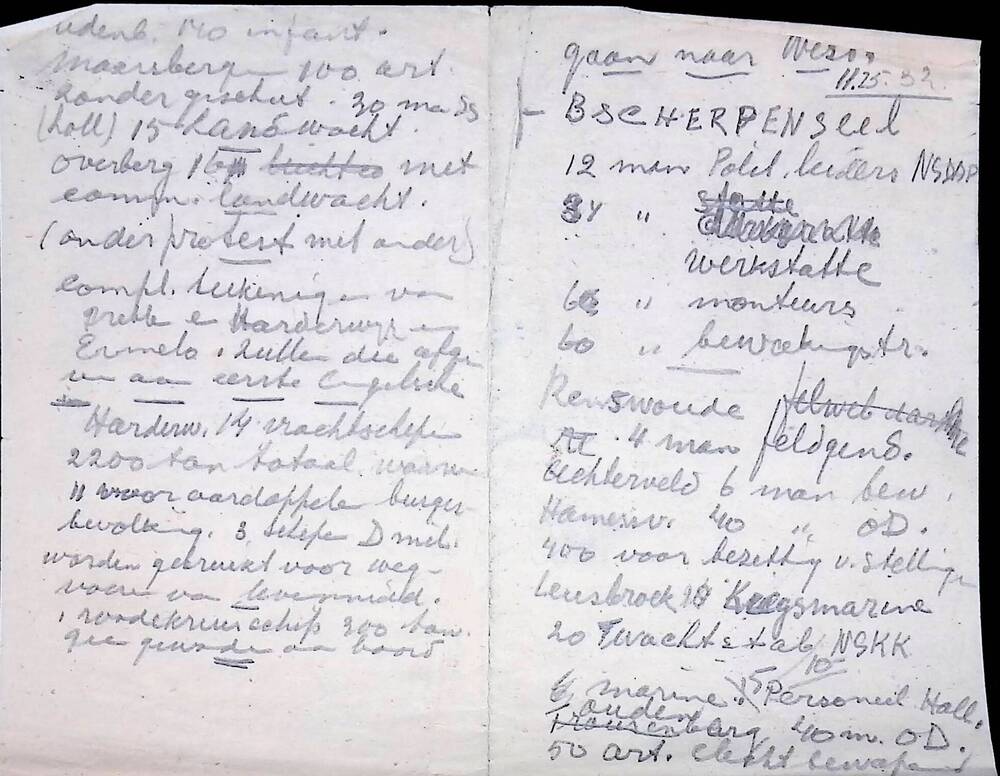 udenb. 140 infant.
Maarsbergen 100 art.
zonder geschut. 30 man SS
(holl) 15 Landwacht.
overberg 16 met
comm. Landwacht.
(onder protest met onder)
compl. tekeningen van
Harderwijk en
Ermelo. Zullen die afge
van aan eerste Engelsche
Harderw. 14 vrachtschepen
2200 ton totaal. waarvan
11 voor aardappelen burger-
bevolking. 3 schepen D mil.
worden gebruikt voor weg-
voeren van levensmidd.
1 roodekruisschip 300 ton.
geen gewonde aan boord
gaan naar West.
11.25.32
BSCHERPENSEEL
12 man Polit. leiders NSDAP
34 " 
Werkstatte
60 " monteurs
60 " bewakingstr.
Renswoude
4 man feldgend.
Achterveld 6 man bew.
Hamersv. 40 " OD.
400 voor bezetting v. stellingen
Leusbroek 14 Kriegsmarine
20 wachtstab NSKK
10
6 marine. 15 Personeel Holl.
ouden
40 m. OD.
50 art. slecht bewapend